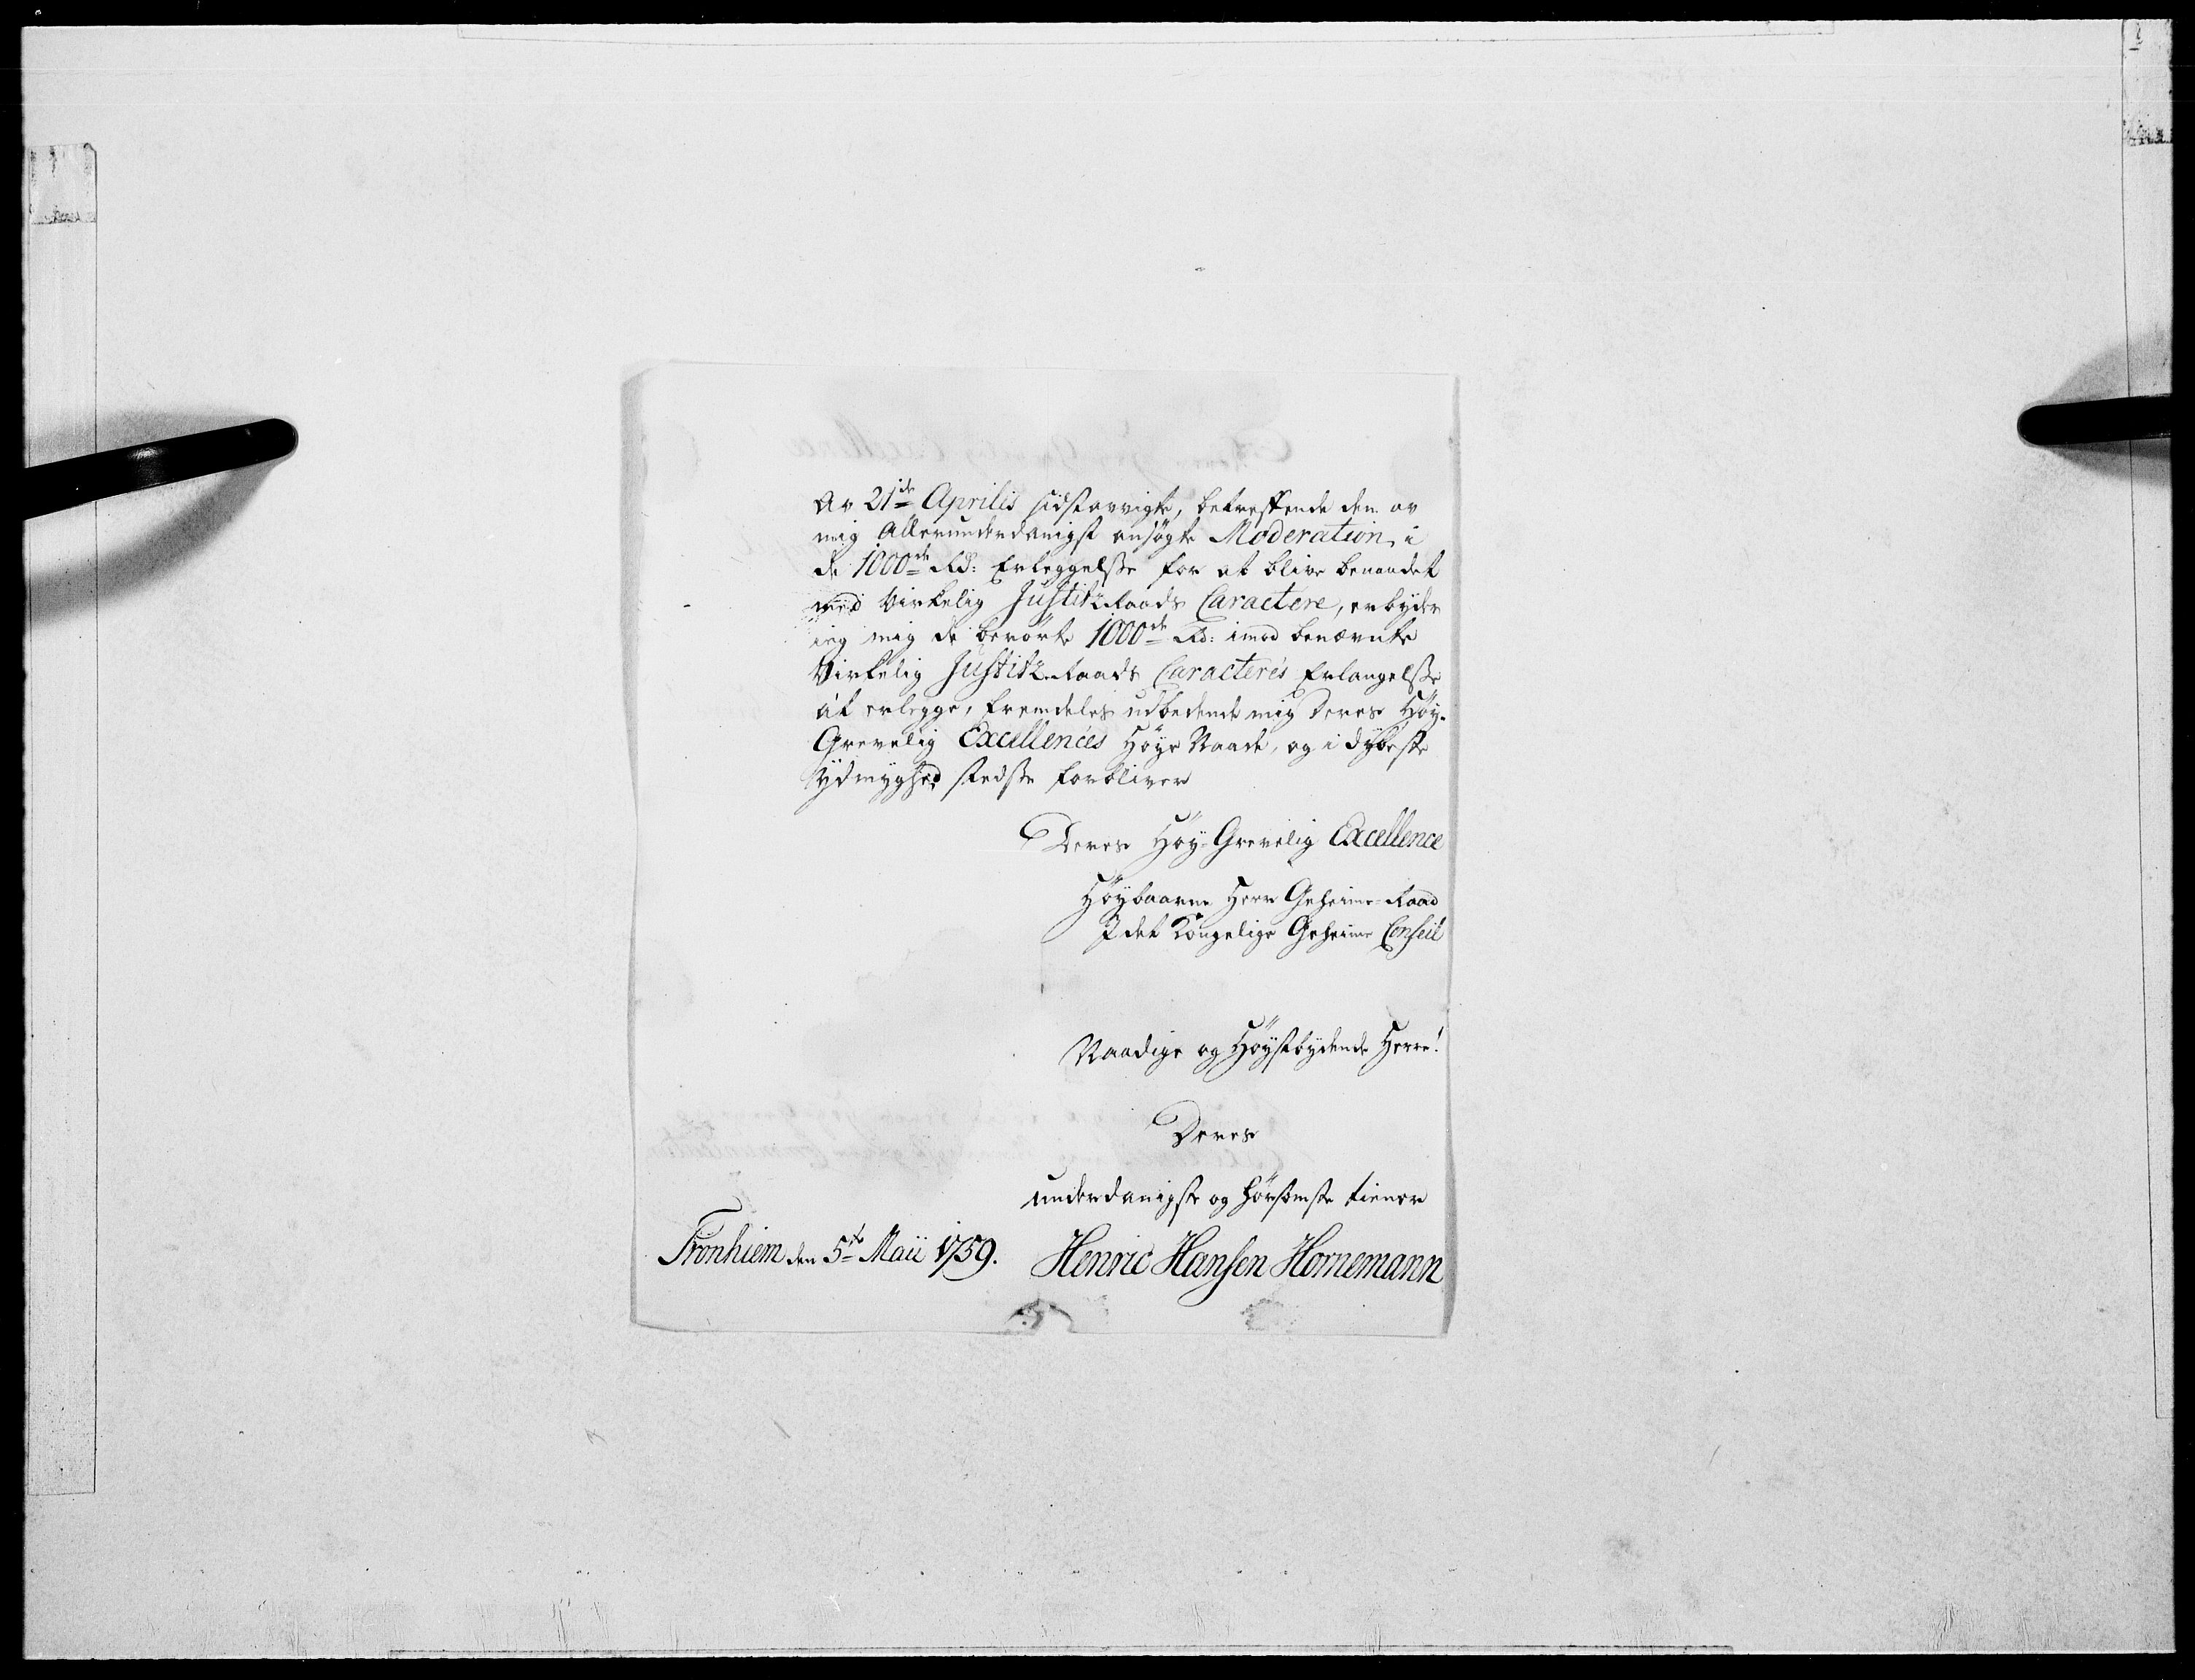 Av 21de Aprilis sidstavvigte, betreffende den av
mig Allerunderdanigst ansøgte Moderation i
de 1000de Rd: Erleggelsse for at blive benaadet
med Virkelig Justitz Raads Caractere, erbyder
ieg mig de berørte 1000de Rd: imod benævnte
Virkelig Justitz-Raads Caracterés Erlangelsse
at erlegge, fremdeles udbedende mig Deres Høy-
Grevelig Excellencés Høye Naade, og i dybeste
Ydmyghed stedsse forbliver
Deres Høy-Grevelig Excellence
Høybaarne Herr Geheime-Raad
I det Kongelige Geheime Conseil
Naadige og Høystbydende Herre!
Deres
underdanigste og hørsomste tiener
Tronhiem den 5te Maii 1759. Henric Hansen Hornemann